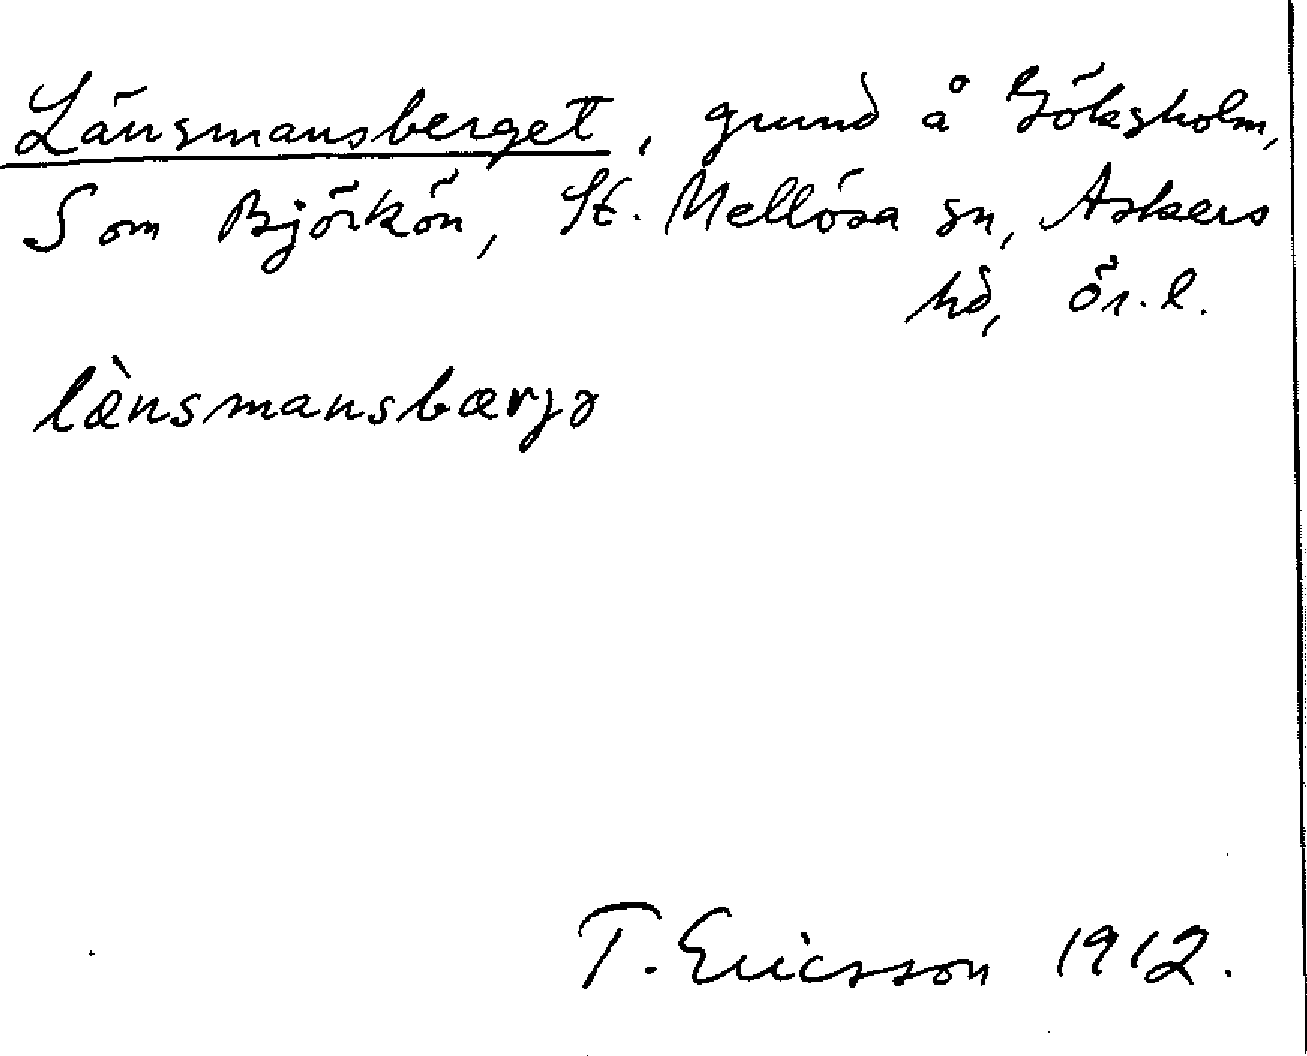 Länsmansberget, grund å Göksholm,
S om Björkön, St. Mellösa sn, Askers
hd, Ör. l.
lànsmansbærjə
T. Ericsson 1912.